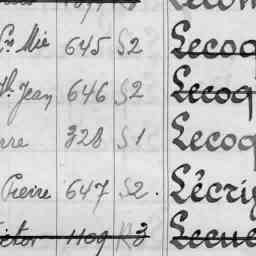 Cⁿ Mie 645 S2 Lecoq
Jean 646 S2 Lecoq
rre 328 S1 Lecoq
Pierre 647 S2. Lécri
ictor 1109 R3 Lecue